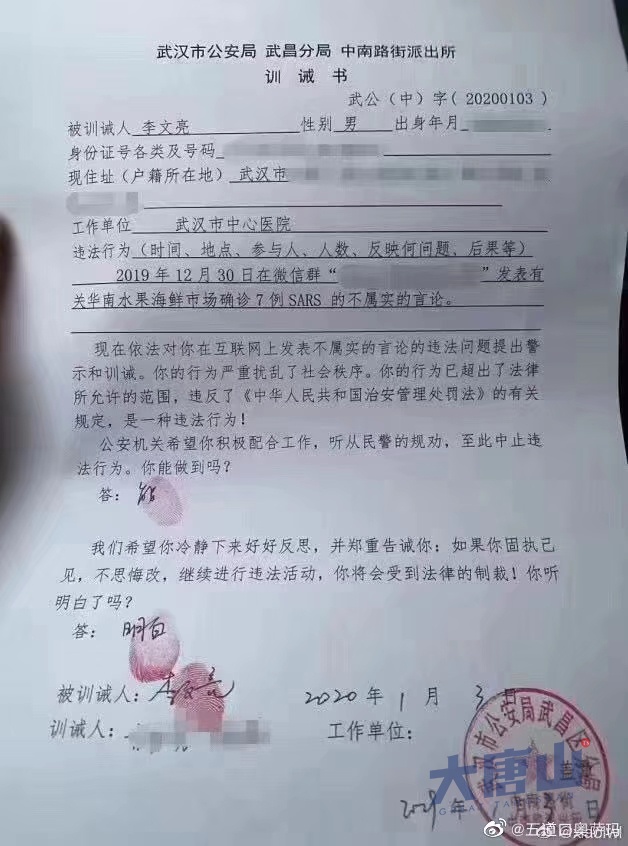 武汉市公安局 武昌分局 中南路街派出所
训 诫 书
武公（中）字（20200103）
被训诫人 李文亮 性别 男 出身年月
身份证号各类及号码
现住址（户籍所在地） 武汉市
工作单位 武汉市中心医院
违法行为（时间、地点、参与人、人数、反映何问题、后果等）
2019年12月30日在微信群“ ”发表有
关华南水果海鲜市场确诊7例SARS 的不属实的言论。
现在依法对你在互联网上发表不属实的言论的违法问题提出警
示和训诫。你的行为严重扰乱了社会秩序。你的行为已超出了法律
所允许的范围，违反了《中华人民共和国治安管理处罚法》的有关
规定，是一种违法行为！
公安机关希望你积极配合工作，听从民警的规劝，至此中止违
法行为。你能做到吗？
答：能
我们希望你冷静下来好好反思，并郑重告诫你：如果你固执己
见，不思悔改，继续进行违法活动，你将会受到法律的制裁！你听
明白了吗？
答：明白
被训诫人：李文亮 2020年1月3日
训诫人： 工作单位：
武汉市公安局武昌区分局
大唐山
年1月3日
@五道口奥萨玛